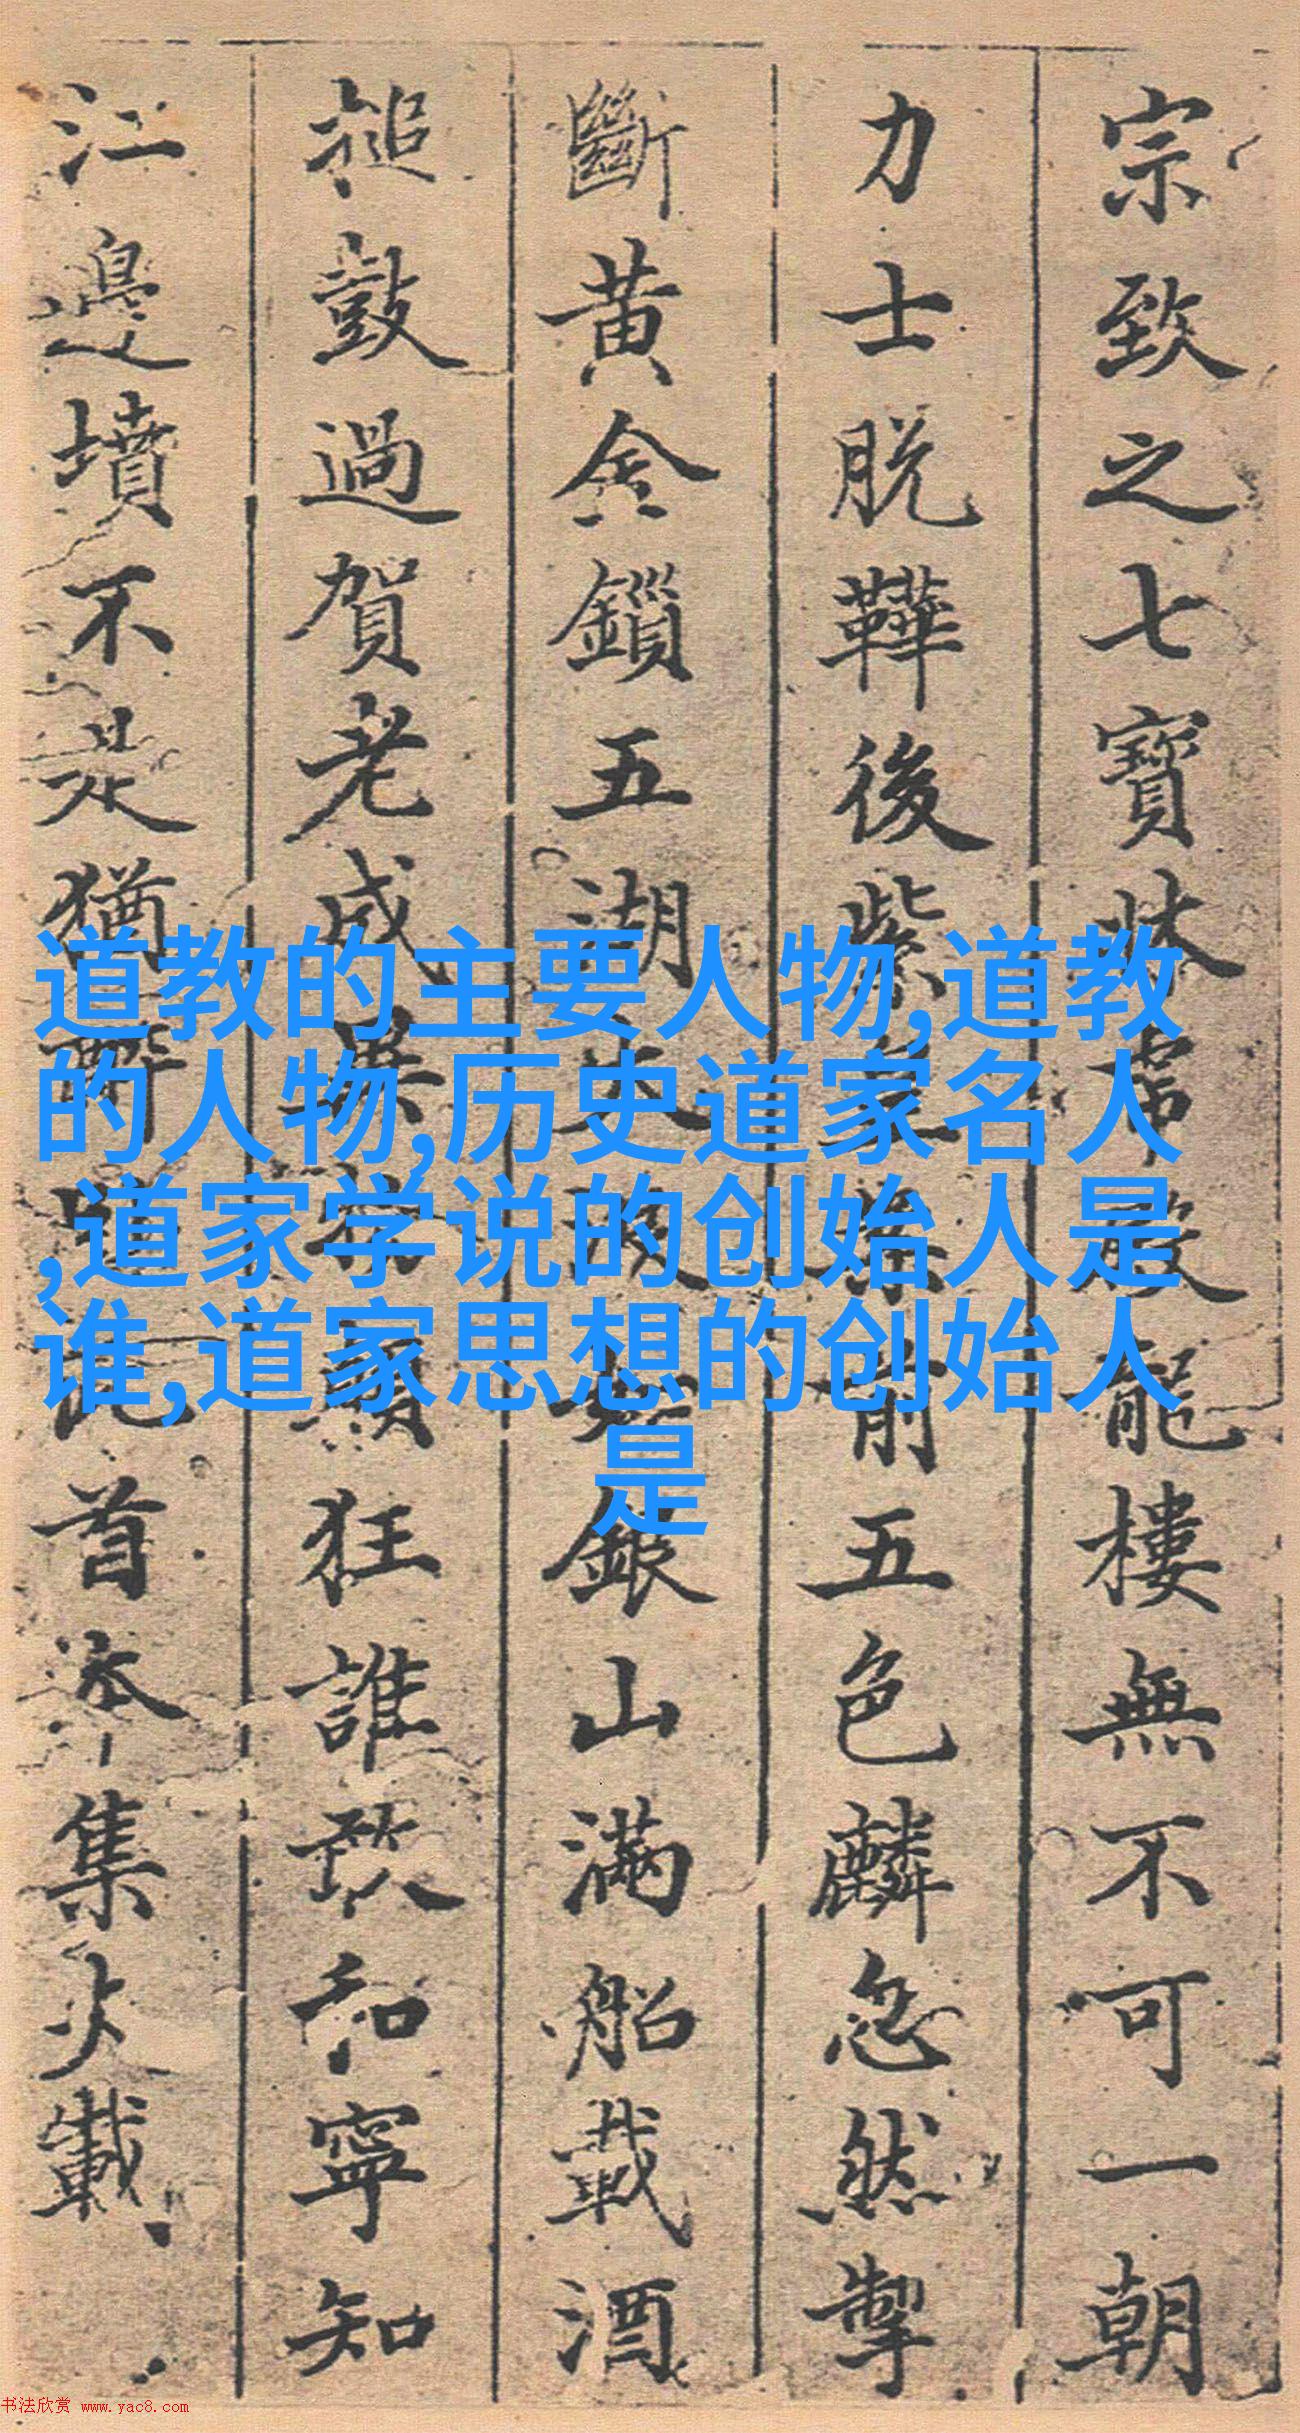 宗致之七寶牀虎殿龍樓無不可一朝
力士脫鞾後紫皇案前五色麟忽然掣
斷黃金鎖五湖大浪如銀山滿船載酒
搥鼓過賀老成異物顛狂誰敢和寧知
江邊墳不是猶醉臥此首本集失載
道教的主要人物,道教
的人物,历史道家名人
,道家学说的创始人是
谁,道家思想的创始人
是
书法欣赏 www.yac8.com